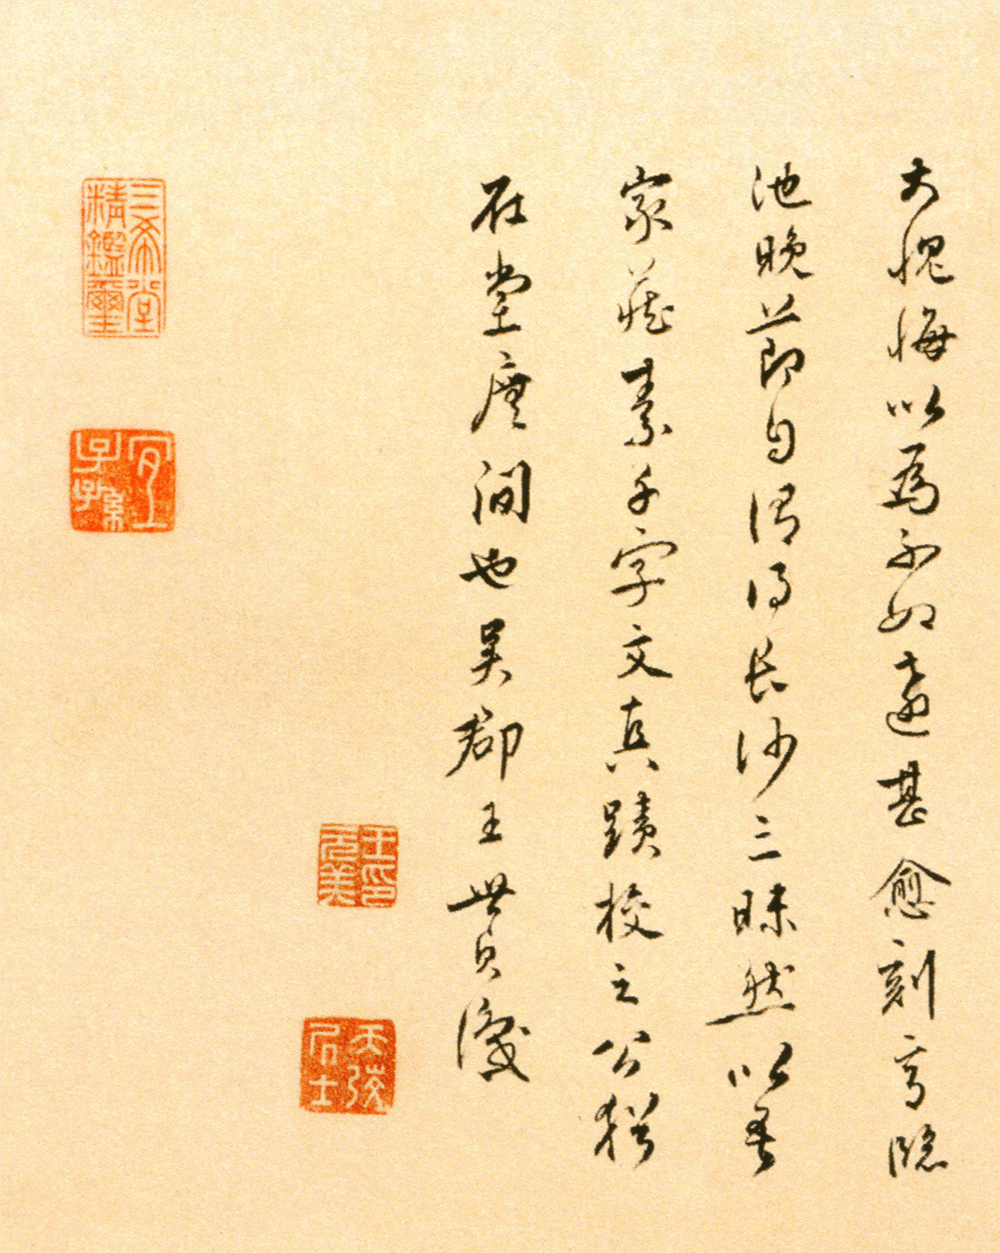 大愧悔以為不如遠甚愈刻意臨
池晚節自謂得長沙三昧然以吾
家藏素千字文真蹟校之公猶
在堂廡間也吳郡王世貞識
三希堂
精鑑璽
宜
子孫
王印
元美
天弢
居士